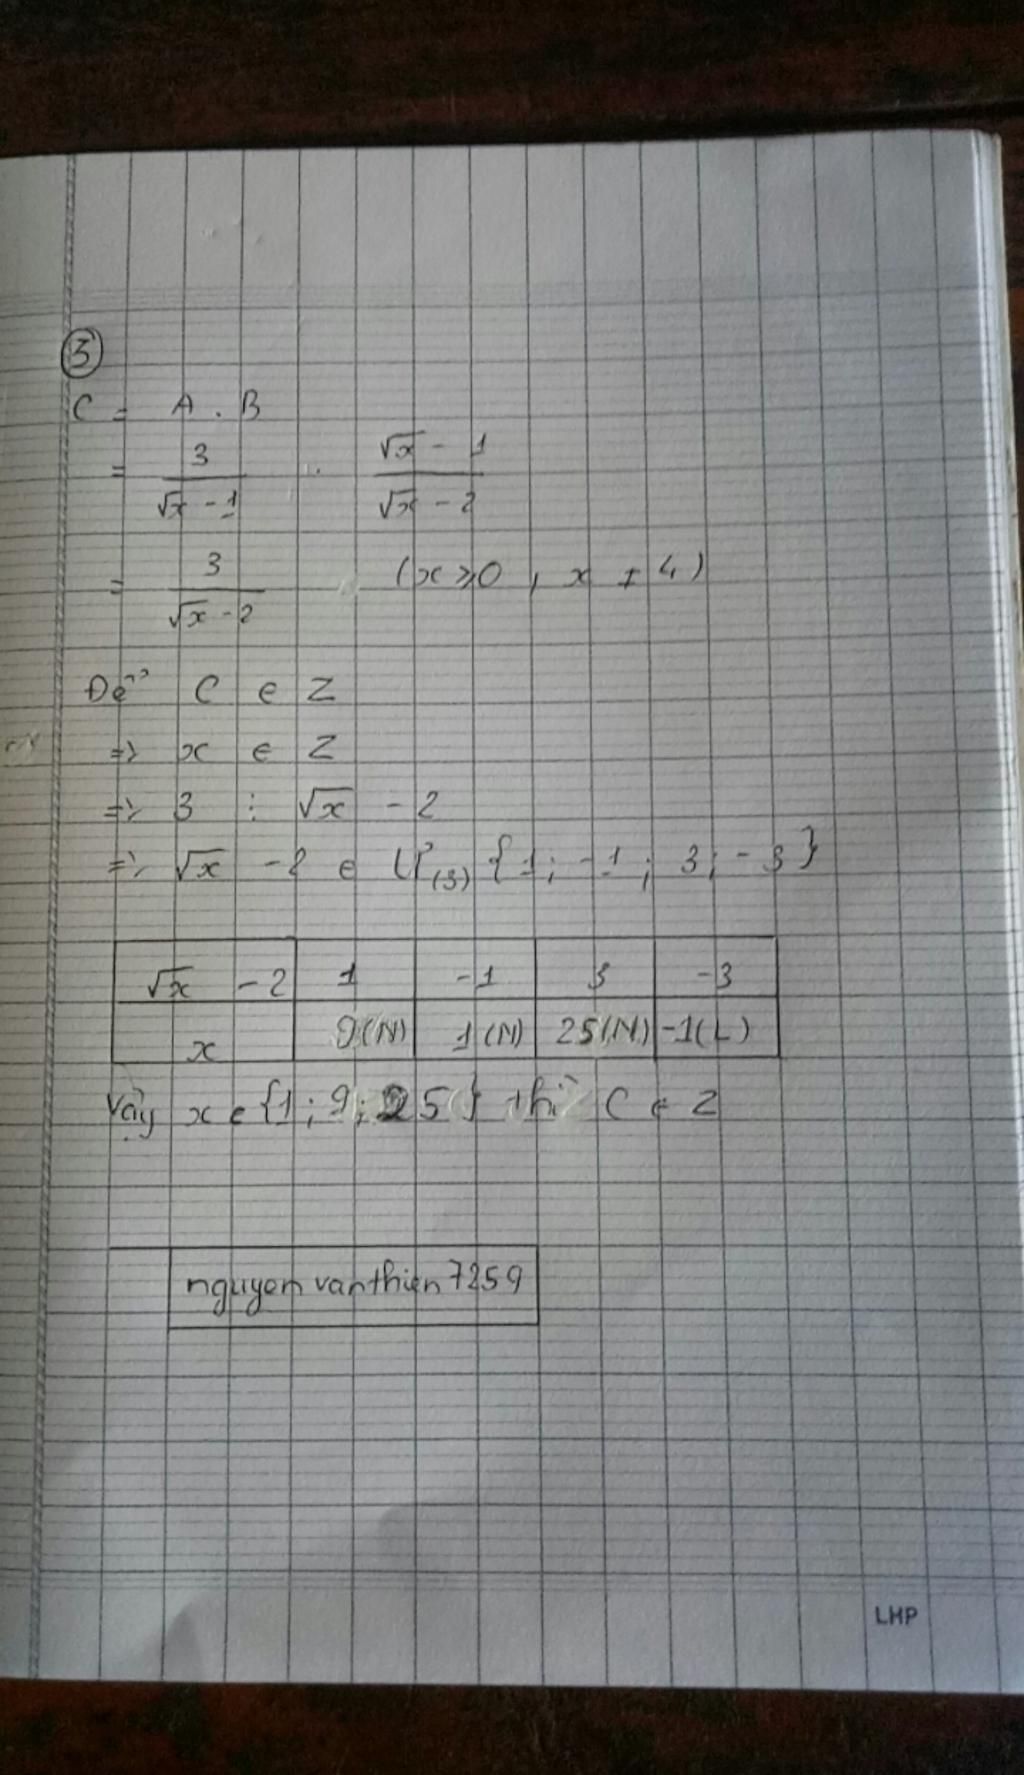 ③
C = A . B
= 3/(√x - 1) . (√x - 1)/(√x - 2)
= 3/(√x - 2) (x ⩾ 0 , x ≠ 4)
Để C ∈ Z
=> x ∈ Z
=> 3 ⋮ √x - 2
=> √x - 2 ∈ Ư(3) {1; -1; 3; -3}
√x - 2 1 -1 3 -3
x 9(N) 1(N) 25(N) -1(L)
Vậy x ∈ {1; 9; 25} thì C ∈ Z
nguyen vanthien7259
LHP